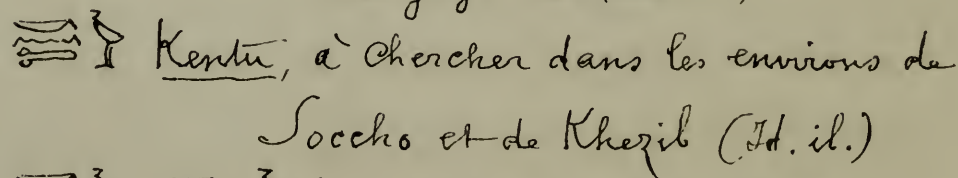 Kentu, à chercher dans les environs de
Soccho et de Khezib (Id. il.)